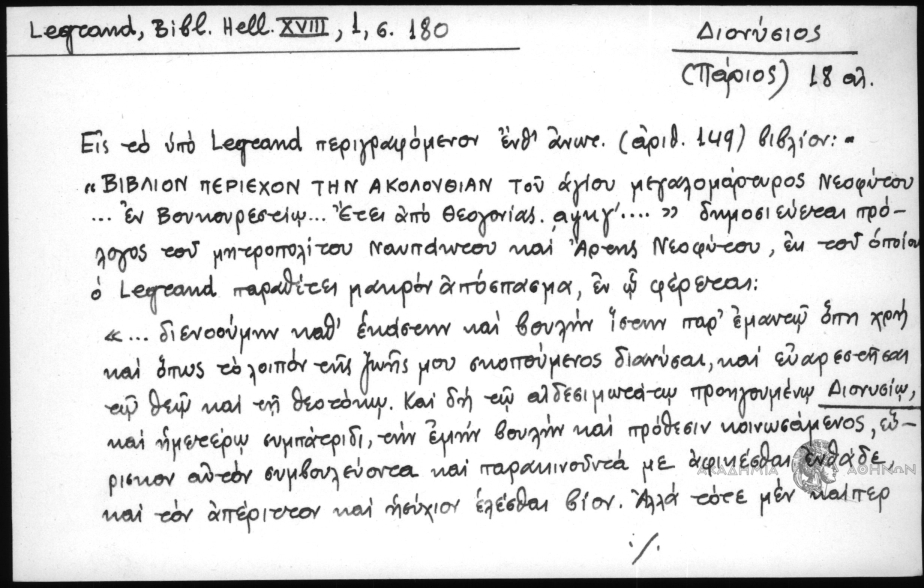 Legrand, Bibl. Hell. XVIII, 1, σ. 180
Διονύσιος
(Πάριος) 18 αι.
Εις το υπό Legrand περιγραφόμενον ένθ' άνωτ. (αριθ. 149) βιβλίον: "
« ΒΙΒΛΙΟΝ ΠΕΡΙΕΧΟΝ ΤΗΝ ΑΚΟΛΟΥΘΙΑΝ Τοῦ ἁγίου μεγαλομάρτυρος Νεοφύτου
... ἐν Βουκουρεστίῳ... Ἔτει ἀπό Θεογονίας ͵αψκγ´.... » δημοσιεύεται πρό-
λογος τοῦ μητροπολίτου Ναυπάκτου καί Ἄρτης Νεοφύτου, ἐκ τοῦ ὁποίου
ὁ Legrand παραθέτει μακρόν ἀπόσπασμα, ἐν ᾧ φέρεται:
« ... διενοούμην καθ' ἑκάστην καί βουλήν ἵστην παρ' ἐμαυτῷ ὅπῃ χρή
καί ὅπως τό λοιπόν τῆς ζωῆς μου σκοπούμενος διανύσαι, καί εὐαρεστῆσαι
τῷ θεῷ καί τῇ θεοτόκῳ. Καί δή τῷ αἰδεσιμωτάτῳ προηγουμένῳ Διονυσίῳ,
καί ἡμετέρῳ συμπατριδι, τήν ἐμήν βουλήν καί πρόθεσιν κοινωσάμενος, εὕ-
ρισκον αὐτόν συμβουλεύοντα καί παρακινοῦντά με ἀφικέσθαι ἐνθάδε,
καί τόν ἀπέριττον καί ἡσύχιον ἑλέσθαι βίον. Ἀλλά τότε μέν καίπερ
./.
ΑΚΑΔΗΜΙΑ ΑΘΗΝΩΝ